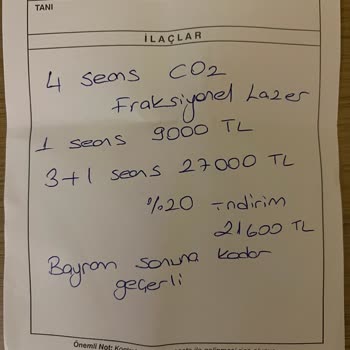 TANI
İLAÇLAR
4 seans CO2
Fraksiyonel Lazer
1 seans 9000 TL
3+1 seans 27000 TL
%20 indirim
21600 TL
Bayram sonuna kadar
geçerli
Önemli Not: